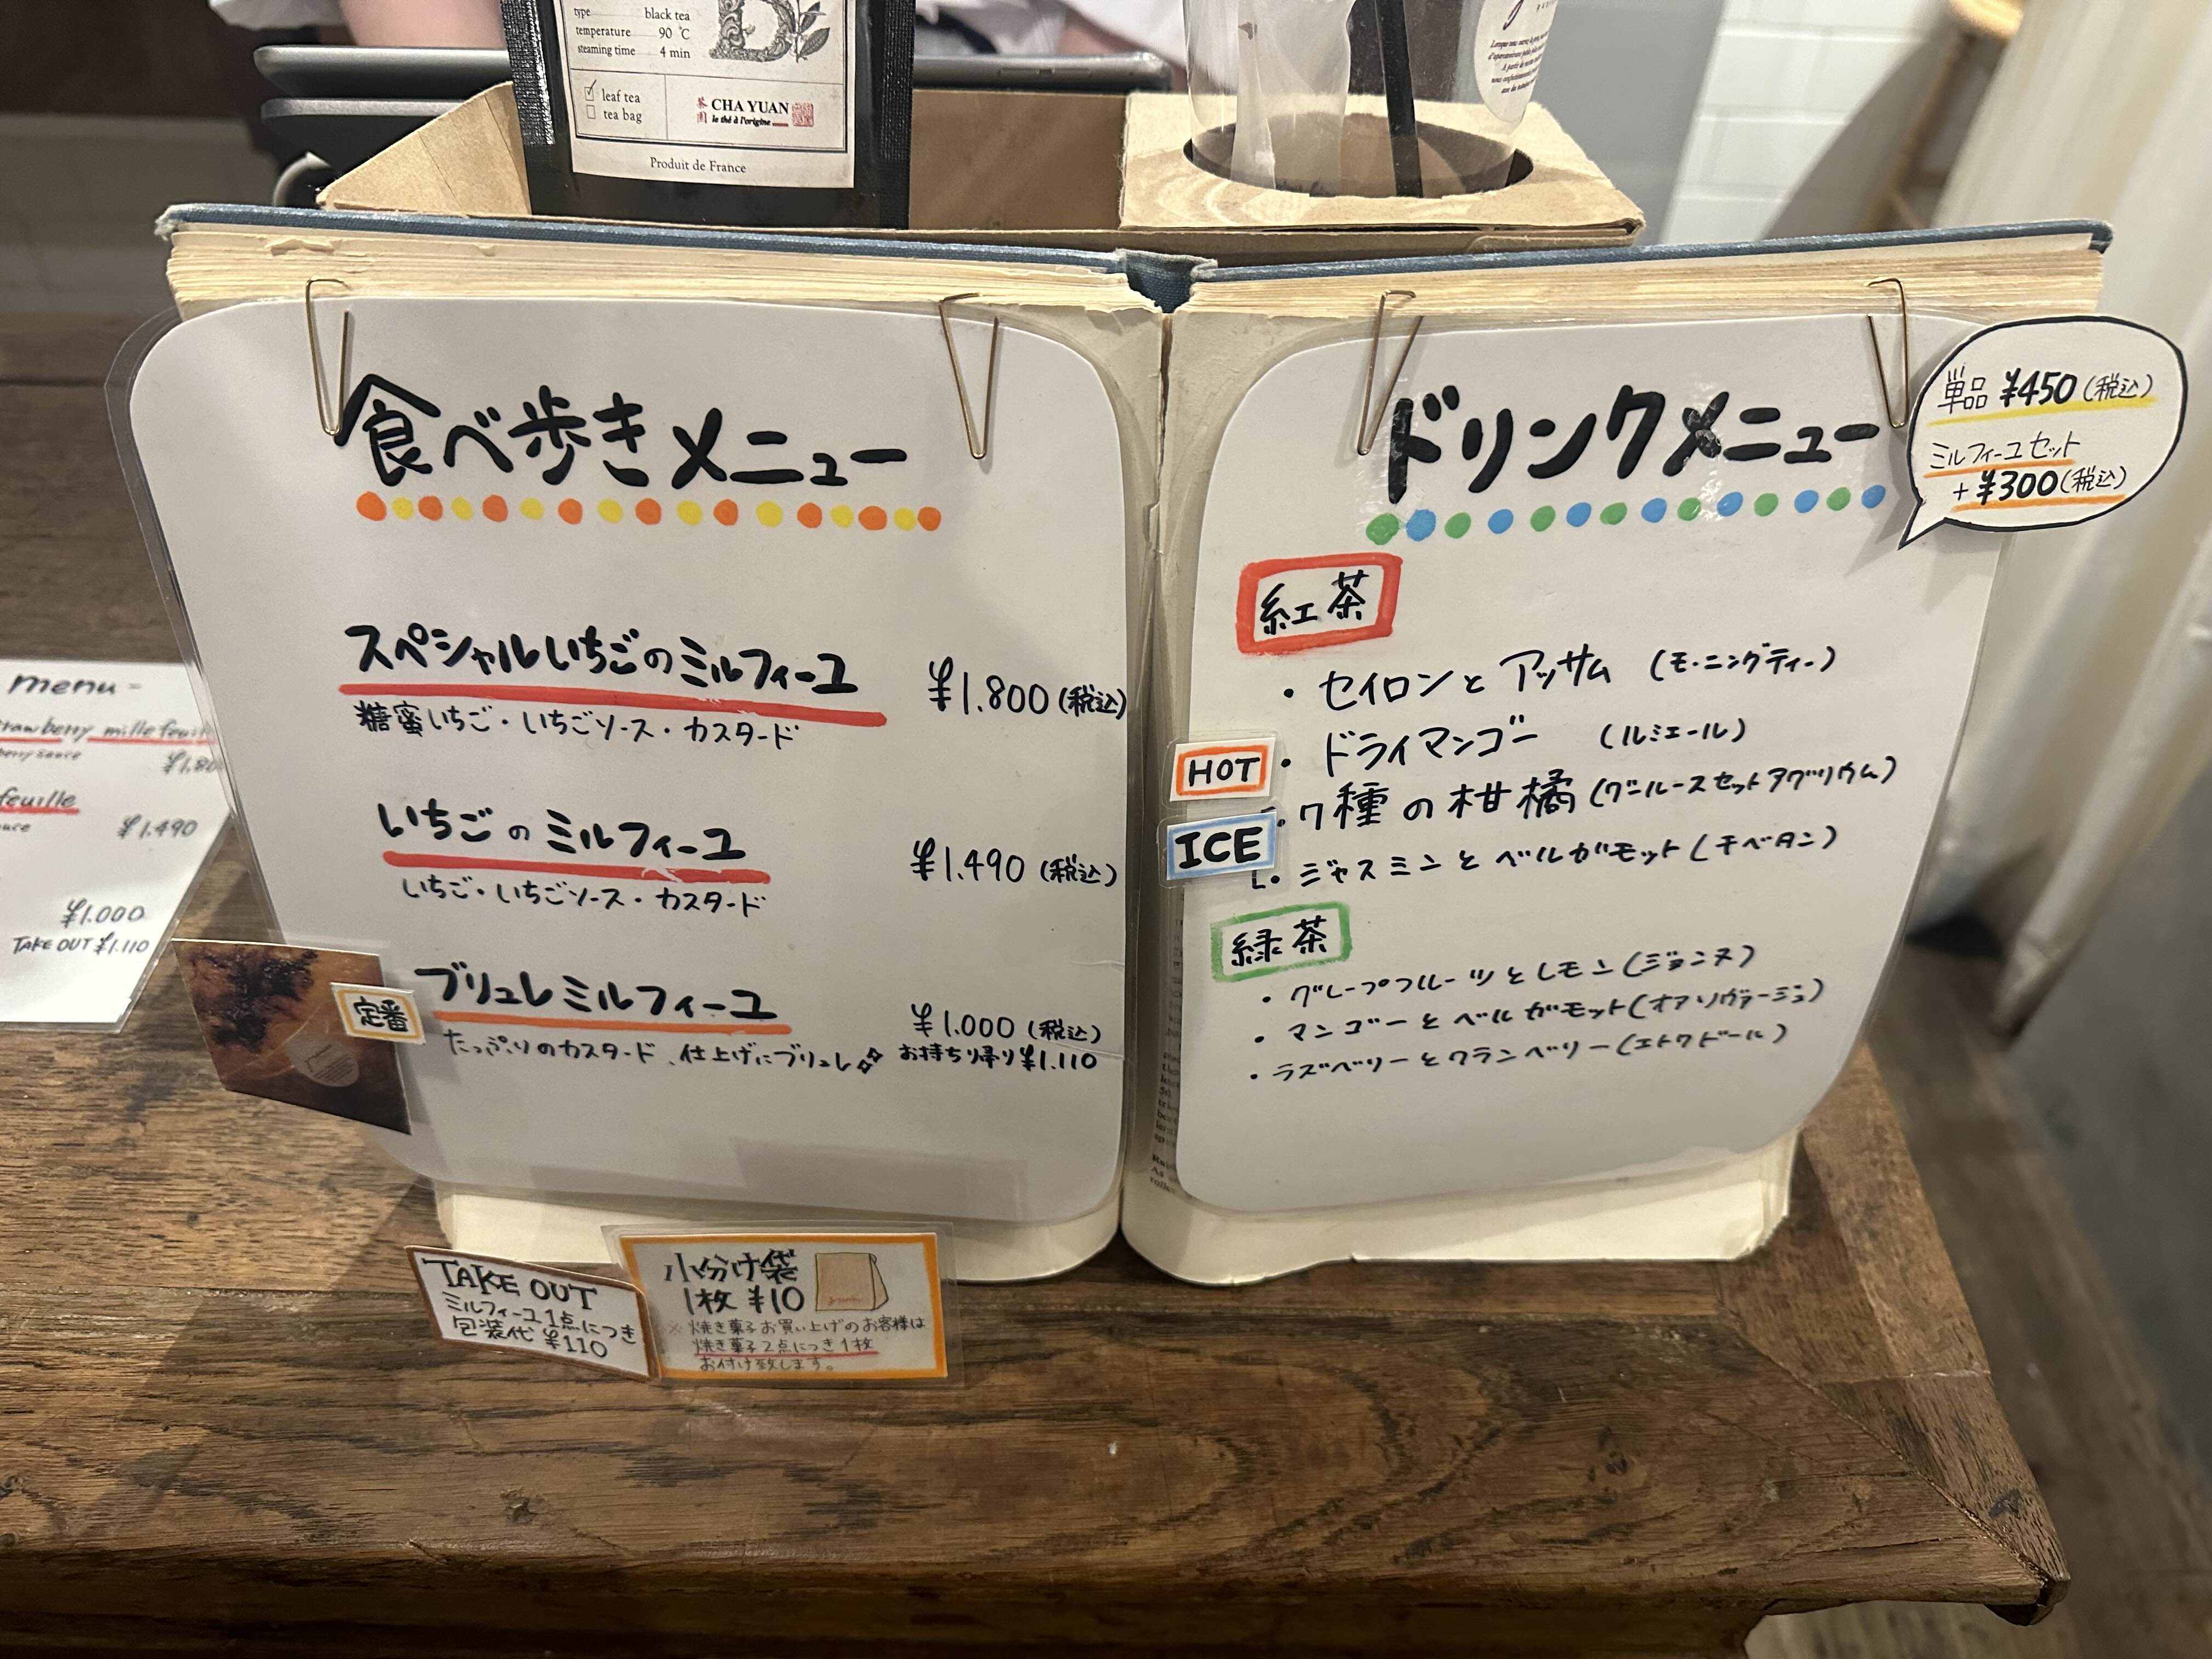 type black tea
temperature 90 ℃
steaming time 4 min
leaf tea
tea bag
茶園 CHA YUAN
le thé à l'origine
Produit de France
食べ歩きメニュー
スペシャルいちごのミルフィーユ ¥1.800(税込)
糖蜜いちご・いちごソース・カスタード
いちごのミルフィーユ ¥1.490(税込)
いちご・いちごソース・カスタード
定番
ブリュレミルフィーユ ¥1.000(税込)
たっぷりのカスタード、仕上げにブリュレ お持ち帰り¥1.110
ドリンクメニュー
単品 ¥450(税込)
ミルフィーユセット
+¥300(税込)
紅茶
・セイロンとアッサム (モーニングティー)
・ドライマンゴー (ルミエール)
HOT
・7種の柑橘(グニルースセットアグリウム)
ICE
・ジャスミンとベルガモット(チベタン)
緑茶
・グレープフルーツとレモン(ジョンヌ)
・マンゴーとベルガモット(オアソヴァージュ)
・ラズベリーとクランベリー(エトワドール)
menu-
rawberry millefeuil
berry sauce
¥1.80
feuille
¥1.490
¥1.000
TAKE OUT ¥1.110
TAKE OUT
ミルフィーユ1点につき
包装代 ¥110
小分け袋
1枚 ¥10
※焼き菓子お買い上げのお客様は
焼き菓子2点につき1枚
お付け致します。